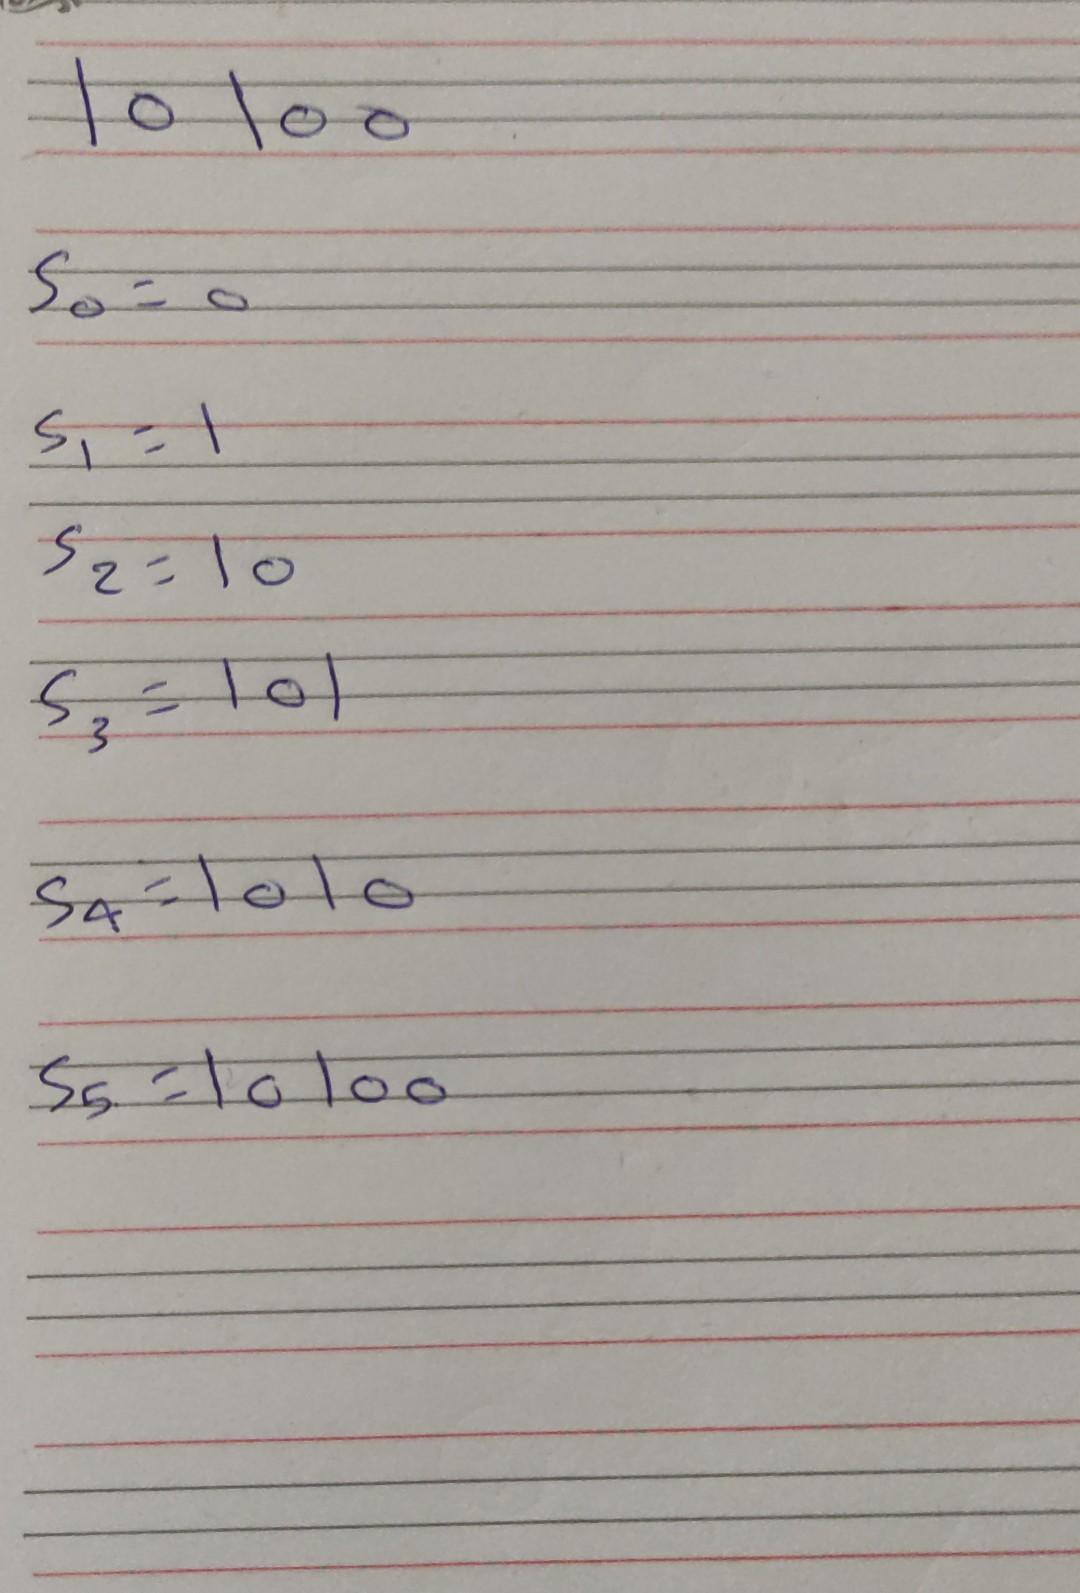 10100
S₀ = 0
S₁ = 1
S₂ = 10
S₃ = 101
S₄ = 1010
S₅ = 10100